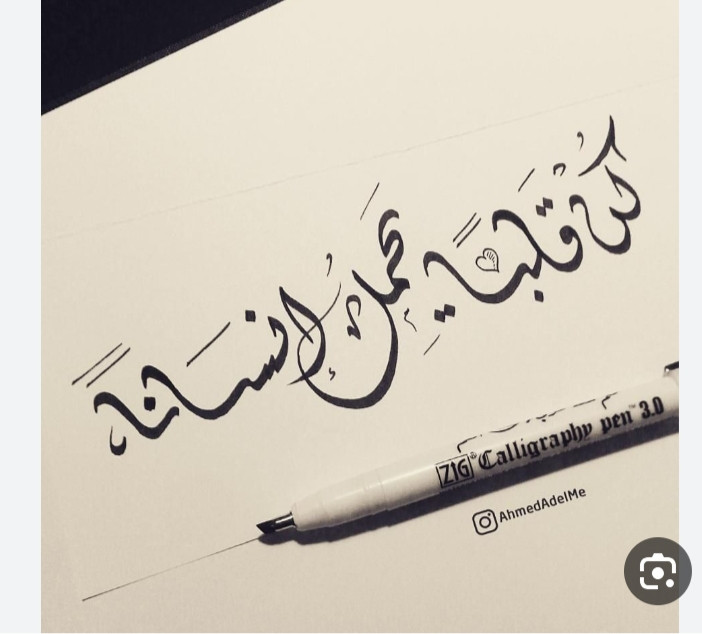 كُن قَلبًا يَحملُ إنسانًا
ZIG® Calligraphy pen™ 3.0
AhmedAdelMe